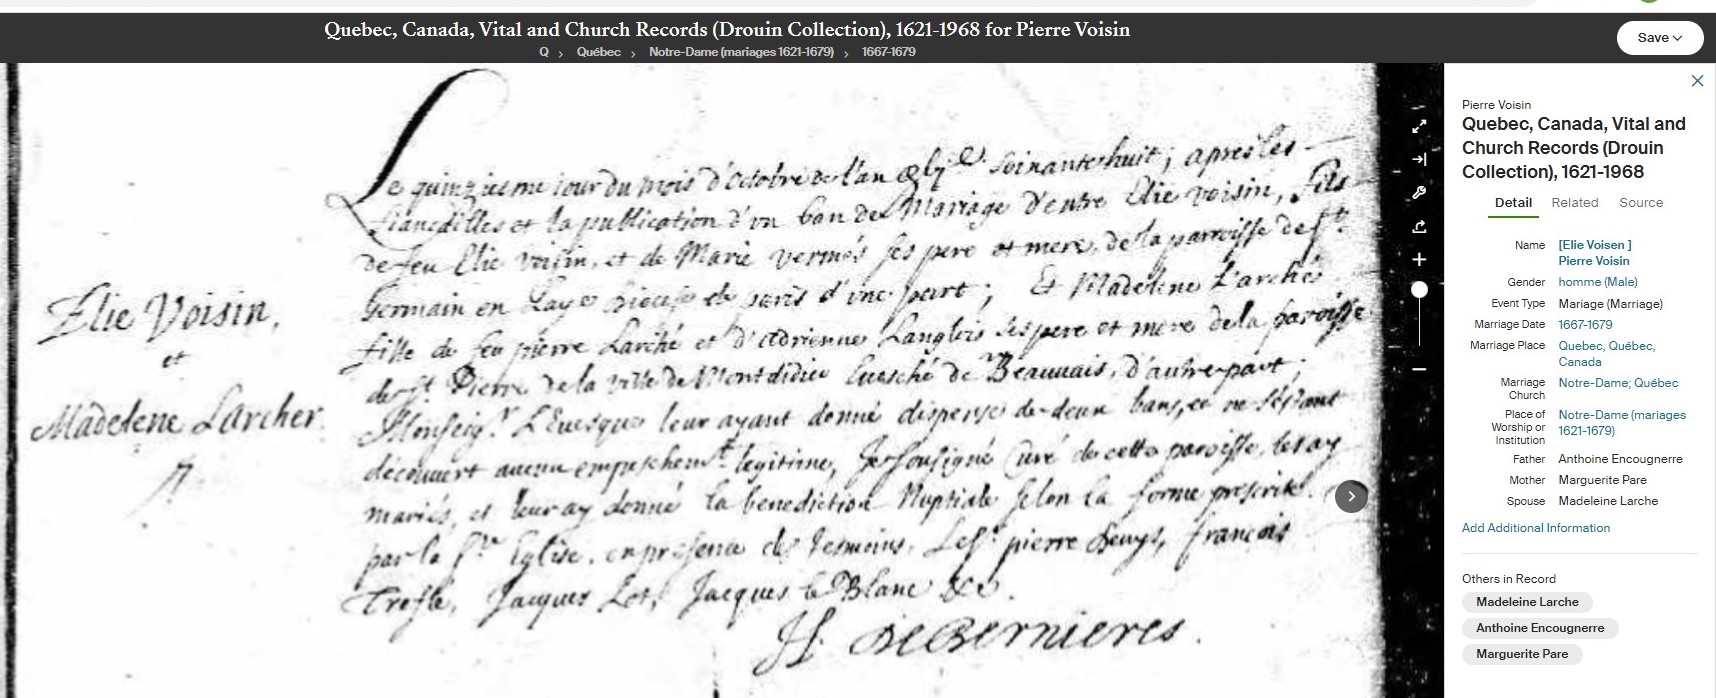 Quebec, Canada, Vital and Church Records (Drouin Collection), 1621-1968 for Pierre Voisin
Q > Québec > Notre-Dame (mariages 1621-1679) > 1667-1679
Save
Elie Voisin,
et
Madelene Larcher.
Le quinziesme iour du mois d'Octobre de l'an soixante-huit; apres les
fiançailles et la publication d'vn ban de Mariage d'entre Elie voisin, fils
de feu Elie voisin, et de Marie vermes ses pere et mere, de la parroisse de St
Germain en Laye diocese de paris d'vne part; Et Madelene Larché
fille de feu pierre Larché et d'Adrienne Langlois ses pere et mere de la paroisse
de St. Pierre de la ville de Montdidier Euesché de Beauuais, d'autre part;
Monseigr. L'Euesque leur ayant donné dispense de deux bans, et ne s'estant
découuert aucun empeschemt. legitime, Je soussigné Curé de cette paroisse, les ay
mariés, et leur ay donné la benediction Nuptiale selon la forme prescrite
par la Ste Eglise, en presence des tesmoins, Les Srs pierre denys, francois
Trefle, Jacques Lot, Jacques le Blanc &c.
H. DeBernieres.
Pierre Voisin
Quebec, Canada, Vital and
Church Records (Drouin
Collection), 1621-1968
Detail Related Source
Name [Elie Voisen ]
Pierre Voisin
Gender homme (Male)
Event Type Mariage (Marriage)
Marriage Date 1667-1679
Marriage Place Quebec, Québec,
Canada
Marriage Church Notre-Dame; Québec
Place of Worship or Institution Notre-Dame (mariages
1621-1679)
Father Anthoine Encougnerre
Mother Marguerite Pare
Spouse Madeleine Larche
Add Additional Information
Others in Record
Madeleine Larche
Anthoine Encougnerre
Marguerite Pare